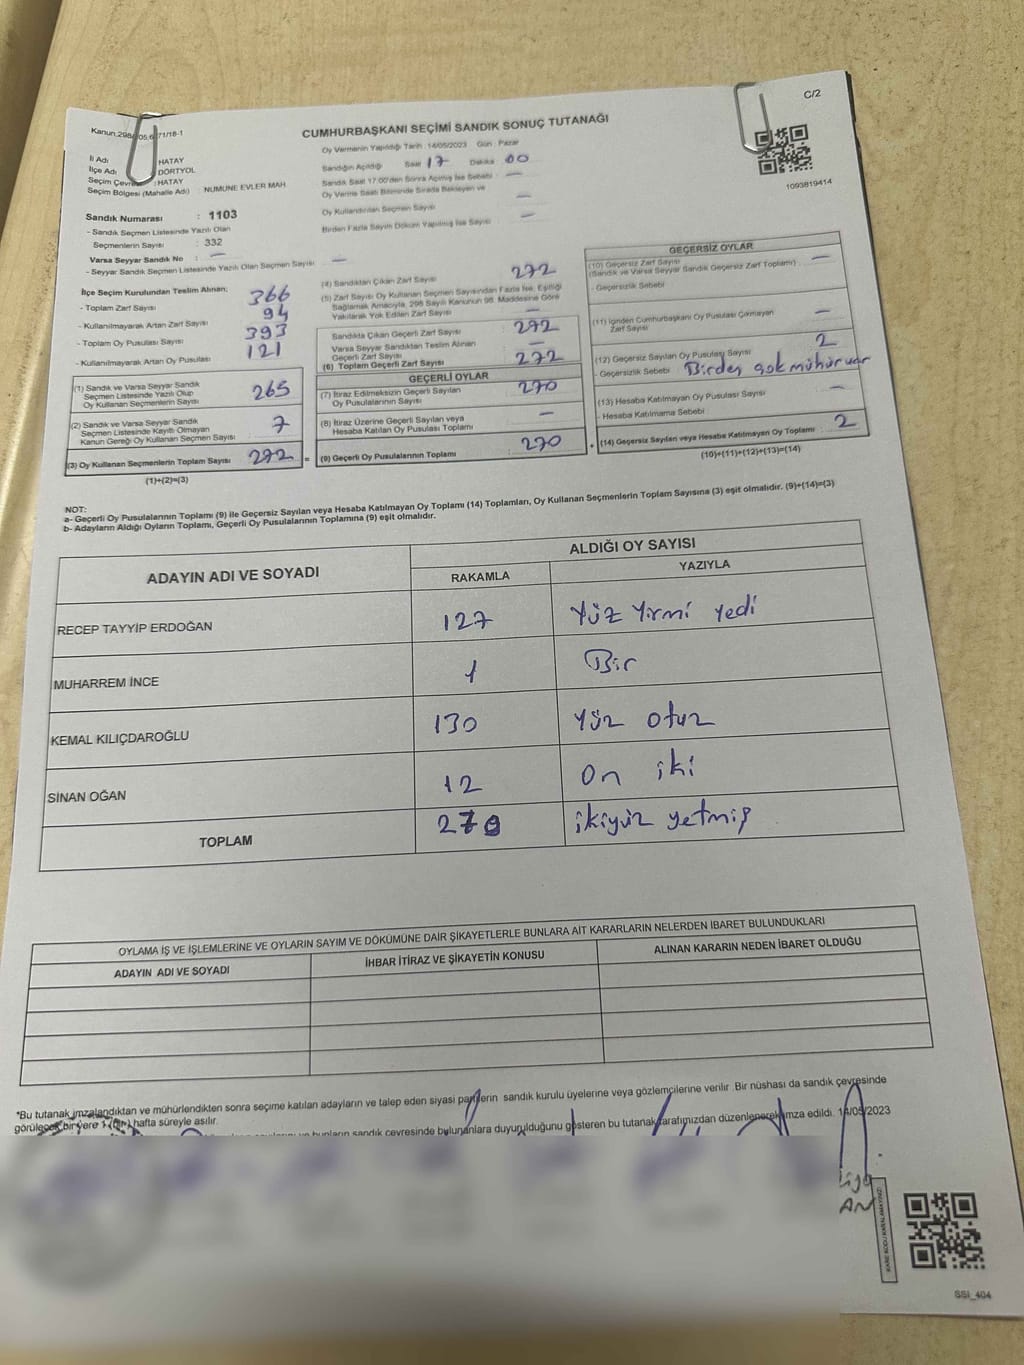 C/2
Kanun,298/105,6,71/18-1
CUMHURBAŞKANI SEÇİMİ SANDIK SONUÇ TUTANAĞI
1093819414
İl Adı : HATAY
İlçe Adı : DÖRTYOL
Seçim Çevresi : HATAY
Seçim Bölgesi (Mahalle Adı) : NUMUNE EVLER MAH
Sandık Numarası : 1103
- Sandık Seçmen Listesinde Yazılı Olan
Seçmenlerin Sayısı : 332
Varsa Seyyar Sandık No : —
- Seyyar Sandık Seçmen Listesinde Yazılı Olan Seçmen Sayısı : —
Oy Vermenin Yapıldığı Tarih :14/05/2023 Gün : Pazar
Sandığın Açıldığı Saat 17 Dakika 00
Sandık Saat 17:00'den Sonra Açılmış İse Sebebi : —
Oy Verme Saati Bitiminde Sırada Bekleyen ve
Oy Kullandırılan Seçmen Sayısı : —
Birden Fazla Sayım Döküm Yapılmış İse Sayısı : —
İlçe Seçim Kurulundan Teslim Alınan;
- Toplam Zarf Sayısı : 366
- Kullanılmayarak Artan Zarf Sayısı : 94
- Toplam Oy Pusulası Sayısı : 393
- Kullanılmayarak Artan Oy Pusulası : 121
(1) Sandık ve Varsa Seyyar Sandık
Seçmen Listesinde Yazılı Olup
Oy Kullanan Seçmenlerin Sayısı : 265
(2) Sandık ve Varsa Seyyar Sandık
Seçmen Listesinde Kayıtlı Olmayan
Kanun Gereği Oy Kullanan Seçmen Sayısı : 7
(3) Oy Kullanan Seçmenlerin Toplam Sayısı : 272
(1)+(2)=(3)
(4) Sandıktan Çıkan Zarf Sayısı : 272
(5) Zarf Sayısı Oy Kullanan Seçmen Sayısından Fazla İse, Eşitliği
Sağlamak Amacıyla, 298 Sayılı Kanunun 98. Maddesine Göre
Yakılarak Yok Edilen Zarf Sayısı : —
Sandıkta Çıkan Geçerli Zarf Sayısı : 272
Varsa Seyyar Sandıktan Teslim Alınan
Geçerli Zarf Sayısı : —
(6) Toplam Geçerli Zarf Sayısı : 272
GEÇERLİ OYLAR
(7) İtiraz Edilmeksizin Geçerli Sayılan
Oy Pusulalarının Sayısı : 270
(8) İtiraz Üzerine Geçerli Sayılan veya
Hesaba Katılan Oy Pusulası Toplamı : —
= (9) Geçerli Oy Pusulalarının Toplamı : 270
GEÇERSİZ OYLAR
(10) Geçersiz Zarf Sayısı
(Sandık ve Varsa Seyyar Sandık Geçersiz Zarf Toplamı) : —
- Geçersizlik Sebebi :
(11) İçinden Cumhurbaşkanı Oy Pusulası Çıkmayan
Zarf Sayısı : —
(12) Geçersiz Sayılan Oy Pusulası Sayısı : 2
- Geçersizlik Sebebi : Birden çok mühür var
(13) Hesaba Katılmayan Oy Pusulası Sayısı : —
- Hesaba Katılmama Sebebi :
+ (14) Geçersiz Sayılan veya Hesaba Katılmayan Oy Toplamı : 2
(10)+(11)+(12)+(13)=(14)
NOT:
a- Geçerli Oy Pusulalarının Toplamı (9) ile Geçersiz Sayılan veya Hesaba Katılmayan Oy Toplamı (14) Toplamları, Oy Kullanan Seçmenlerin Toplam Sayısına (3) eşit olmalıdır. (9)+(14)=(3)
b- Adayların Aldığı Oyların Toplamı, Geçerli Oy Pusulalarının Toplamına (9) eşit olmalıdır.
ADAYIN ADI VE SOYADI
ALDIĞI OY SAYISI
RAKAMLA YAZIYLA
RECEP TAYYİP ERDOĞAN 127 Yüz Yirmi Yedi
MUHARREM İNCE 1 Bir
KEMAL KILIÇDAROĞLU 130 Yüz otuz
SİNAN OĞAN 12 On iki
TOPLAM 270 ikiyüz yetmiş
OYLAMA İŞ VE İŞLEMLERİNE VE OYLARIN SAYIM VE DÖKÜMÜNE DAİR ŞİKAYETLERLE BUNLARA AİT KARARLARIN NELERDEN İBARET BULUNDUKLARI
ADAYIN ADI VE SOYADI İHBAR İTİRAZ VE ŞİKAYETİN KONUSU ALINAN KARARIN NEDEN İBARET OLDUĞU
*Bu tutanak imzalandıktan ve mühürlendikten sonra seçime katılan adayların ve talep eden siyasi partilerin sandık kurulu üyelerine veya gözlemcilerine verilir .Bir nüshası da sandık çevresinde
görülecek bir yere 1 (Bir) hafta süreyle asılır.
bunların sandık çevresinde bulunanlara duyurulduğunu gösteren bu tutanak tarafımızdan düzenlenerek imza edildi. 14/05/2023
KARE KODU KAPATMAYINIZ!
SSI_404